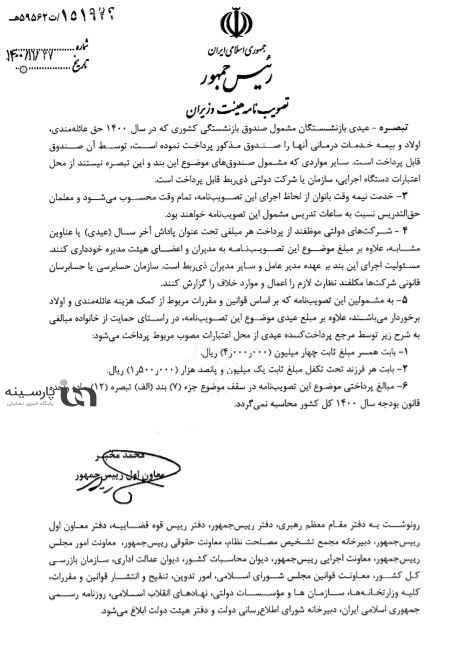 ۱۵۱۹۴۴/ت۵۹۵۶۲هـ
شماره
۱۴۰۰/۱۲/۲۷
تاریخ
جمهوری اسلامی ایران
رئیس جمهور
تصویب نامه هیئت وزیران
تبصره - عیدی بازنشستگان مشمول صندوق بازنشستگی کشوری که در سال ۱۴۰۰ حق عائله‌مندی،
اولاد و بیمه خدمات درمانی آنها را صندوق مذکور پرداخت نموده است، توسط آن صندوق
قابل پرداخت است. سایر مواردی که مشمول صندوق‌های موضوع این بند و این تبصره نیستند از محل
اعتبارات دستگاه اجرایی، سازمان یا شرکت دولتی ذی‌ربط قابل پرداخت است.
۳- خدمت نیمه وقت بانوان از لحاظ اجرای این تصویب‌نامه، تمام وقت محسوب می‌شود و معلمان
حق‌التدریس نسبت به ساعات تدریس مشمول این تصویب‌نامه خواهند بود.
۴ - شرکت‌های دولتی موظفند از پرداخت هر مبلغی تحت عنوان پاداش آخر سال (عیدی) یا عناوین
مشابه، علاوه بر مبلغ موضوع این تصویب‌نامه به مدیران و اعضای هیئت مدیره خودداری کنند.
مسئولیت اجرای این بند بر عهده مدیر عامل و سایر مدیران ذی‌ربط است. سازمان حسابرسی یا حسابرسان
قانونی شرکت‌ها مکلفند نظارت لازم را اعمال و موارد خلاف را گزارش کنند.
۵- به مشمولین این تصویب‌نامه که بر اساس قوانین و مقررات مربوط از کمک هزینه عائله‌مندی و اولاد
برخوردار می‌باشند، علاوه بر مبلغ عیدی موضوع این تصویب‌نامه، در راستای حمایت از خانواده مبالغی
به شرح زیر توسط مرجع پرداخت‌کننده عیدی از محل اعتبارات مصوب مربوط پرداخت می‌شود:
۱- بابت همسر مبلغ ثابت چهار میلیون (۴٫۰۰۰٫۰۰۰) ریال.
۲- بابت هر فرزند تحت تکفل مبلغ ثابت یک میلیون و پانصد هزار (۱٫۵۰۰٫۰۰۰) ریال.
۶- مبالغ پرداختی موضوع این تصویب‌نامه در سقف موضوع جزء (۷) بند (الف) تبصره (۱۲)
قانون بودجه سال ۱۴۰۰ کل کشور محاسبه نمی‌گردد.
پارسینه
پایگاه خبری تحلیلی
محمد مخبر
معاون اول رییس جمهور
رونوشت به دفتر مقام معظم رهبری، دفتر رییس‌جمهور، دفتر رییس قوه قضاییه، دفتر معاون اول
رییس جمهور، دبیرخانه مجمع تشخیص مصلحت نظام، معاونت حقوقی رییس‌جمهور، معاونت امور مجلس
رییس‌جمهور، معاونت اجرایی رییس‌جمهور، دیوان محاسبات کشور، دیوان عدالت اداری، سازمان بازرسی
کل کشور، معاونت قوانین مجلس شورای اسلامی، امور تدوین، تنقیح و انتشار قوانین و مقررات،
کلیه وزارتخانه‌ها، سازمان ها و مؤسسات دولتی، نهادهای انقلاب اسلامی، روزنامه رسمی
جمهوری اسلامی ایران، دبیرخانه شورای اطلاع‌رسانی دولت و دفتر هیئت دولت ابلاغ می‌شود.